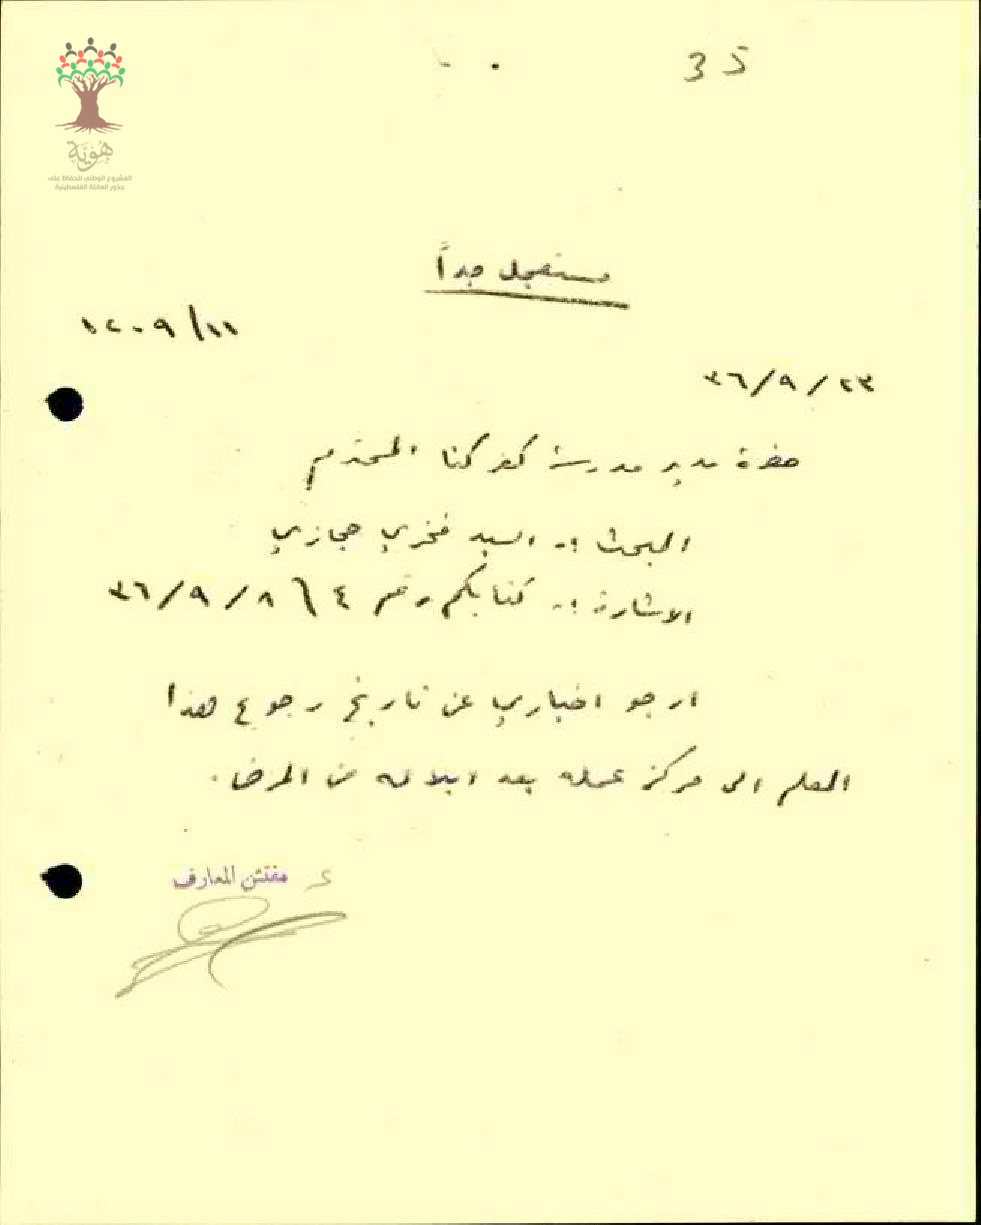 35
هوية
المشروع الوطني للحفاظ على
جذور العائلة الفلسطينية
مستعجل جداً
١٢٠٩/١١
٢٣/٩/٣٦
حضرة مدير مدرسة كفر كنا المحترم
البحث :- السيد فخري حجازي
الاشارة :- كتابكم رقم ٤\ ٨/٩/٣٦
ارجو اخباري عن تاريخ رجوع هذا
المعلم الى مركز عمله بعد ابلاله من المرض.
ع مفتش المعارف